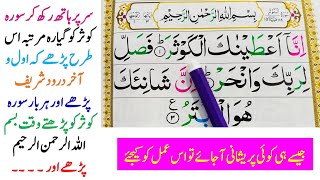 بِسْمِ اللهِ الرَّحْمٰنِ الرَّحِيْمِ
اِنَّاۤ اَعْطَيْنٰكَ الْكَوْثَرَ ۱ فَصَلِّ
لِرَبِّكَ وَانْحَرْ اِنَّ شَانِئَكَ
هُوَ الْاَبْتَرُ ۳ ع
جیسے ہی کوئی پریشانی آجائے تو اس عمل کو کیجئے
سر پر ہاتھ رکھ کر سورہ
کوثر کو گیارہ مرتبہ اس
طرح پڑھے کہ اول و
آخر درود شریف
پڑھے اور ہر بار سورہ
کوثر کو پڑھتے وقت بسم
اللہ الرحمن الرحیم
پڑھے اور ۔۔۔۔